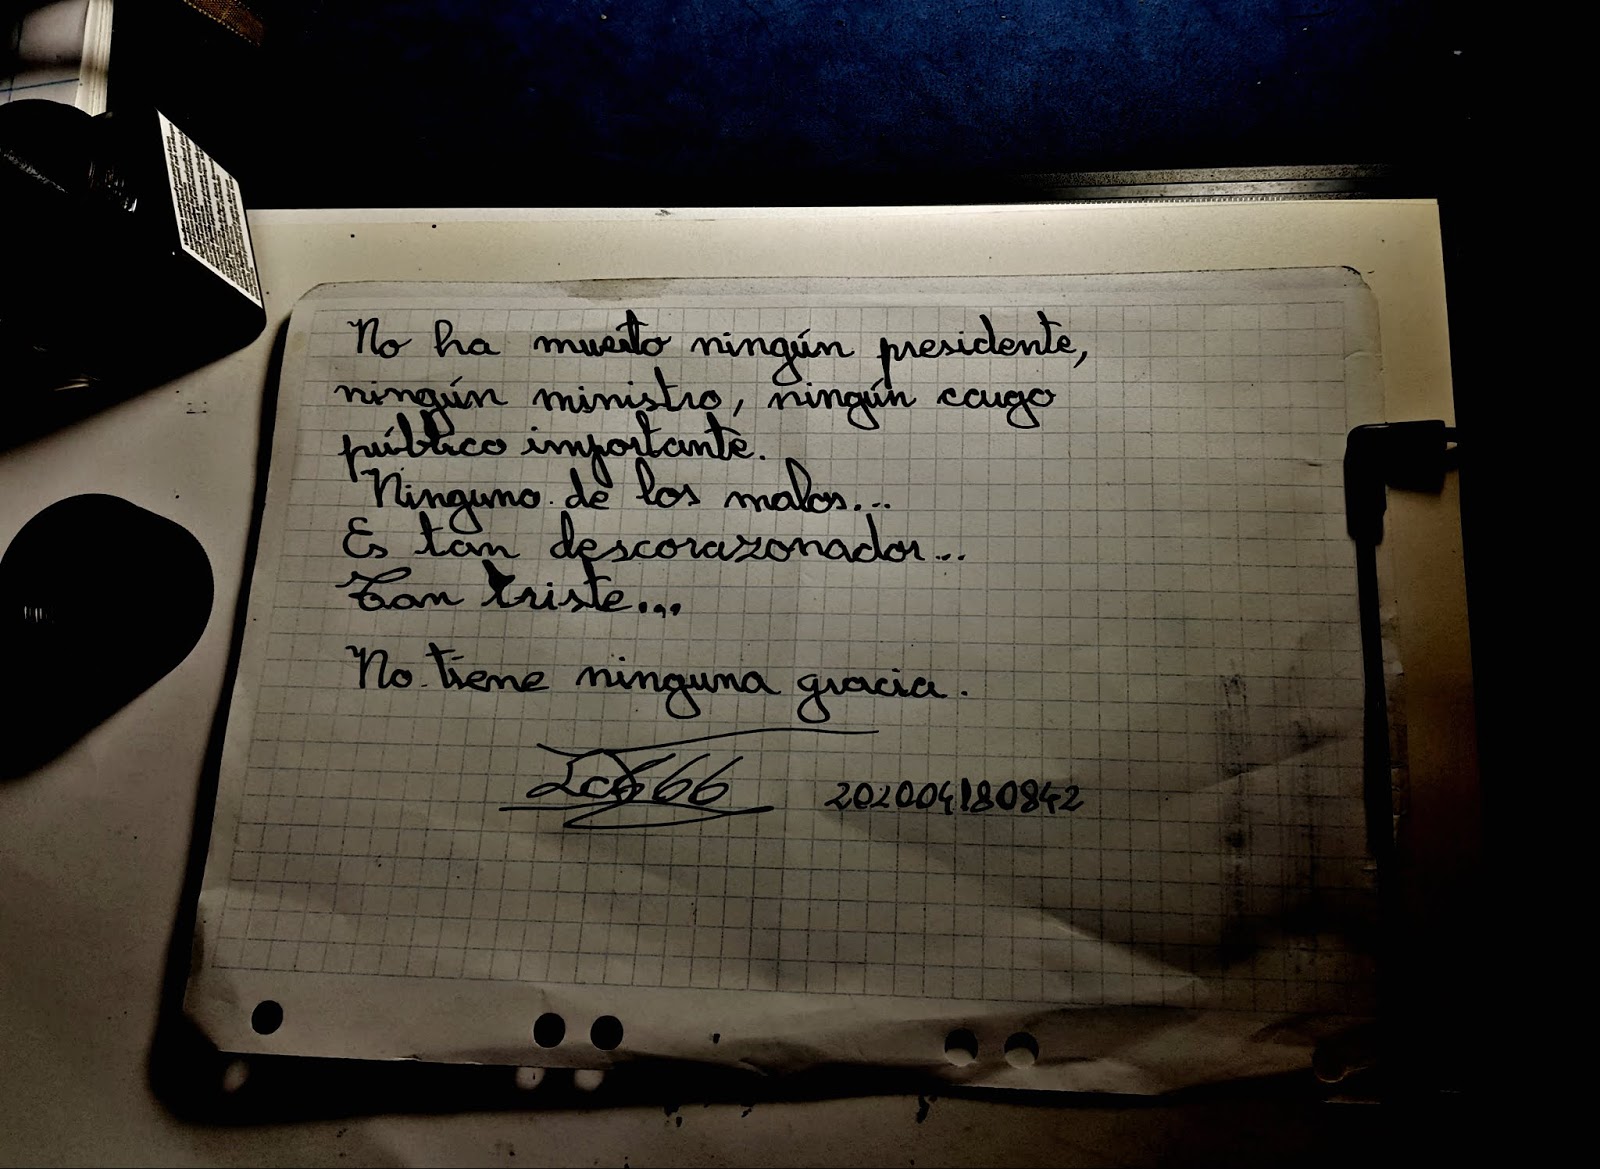 No ha muerto ningún presidente,
ningún ministro, ningún cargo
público importante.
Ninguno de los malos...
Es tan descorazonador...
Tan triste...
No tiene ninguna gracia.
202004180842